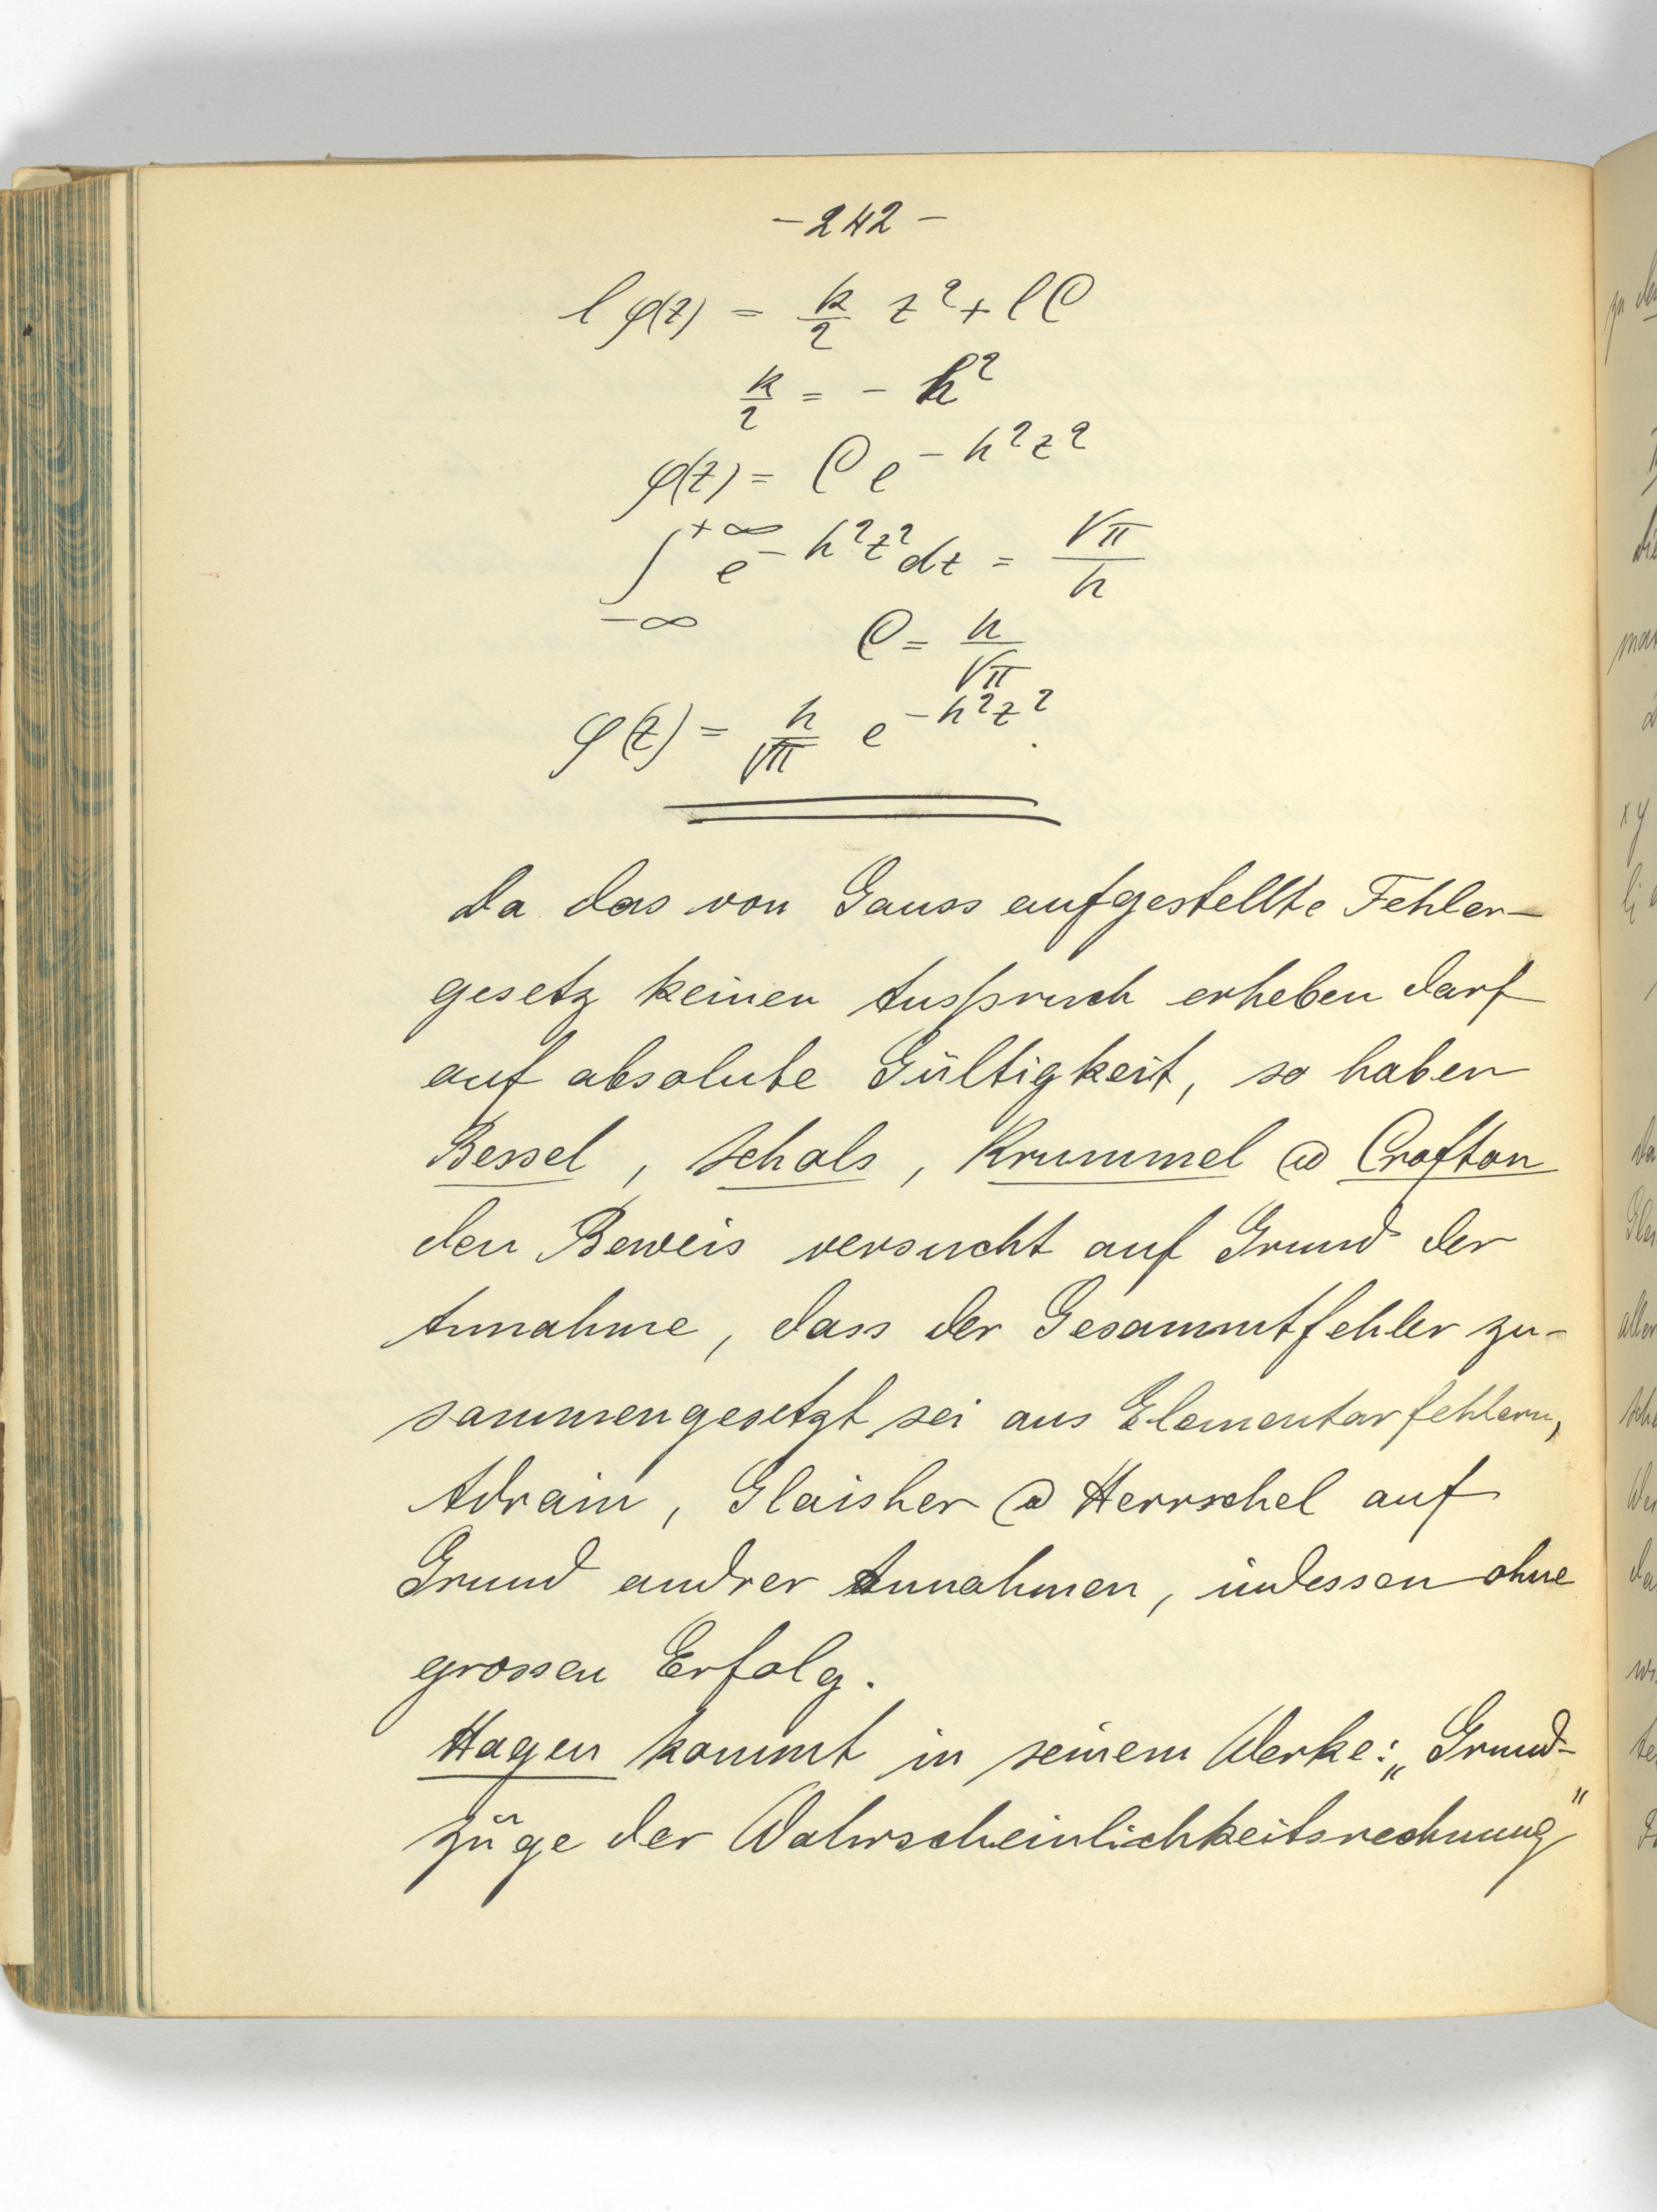 - 242 -
l φ(z) = k/2 z² + l C
k/2 = - h²
φ(z) = C e^{- h² z²}
∫_{-∞}^{+∞} e^{- h² z²} dz = √π / h
C = h / √π
φ(z) = h/√π e^{- h² z²}.
Da das von Gauss aufgestellte Fehler-
gesetz keinen Anspruch erheben darf
auf absolute Gültigkeit, so haben
Bessel, Schols, Krummel & Crofton
den Beweis versucht auf Grund der
Annahme, dass der Gesammtfehler zu-
sammengesetzt sei aus Elementarfehlern,
Adrain, Glaisher & Herrschel auf
Grund andrer Annahmen, indessen ohne
grossen Erfolg.
Hagen kommt in seinem Werke: „Grund-
züge der Wahrscheinlichkeitsrechnung"